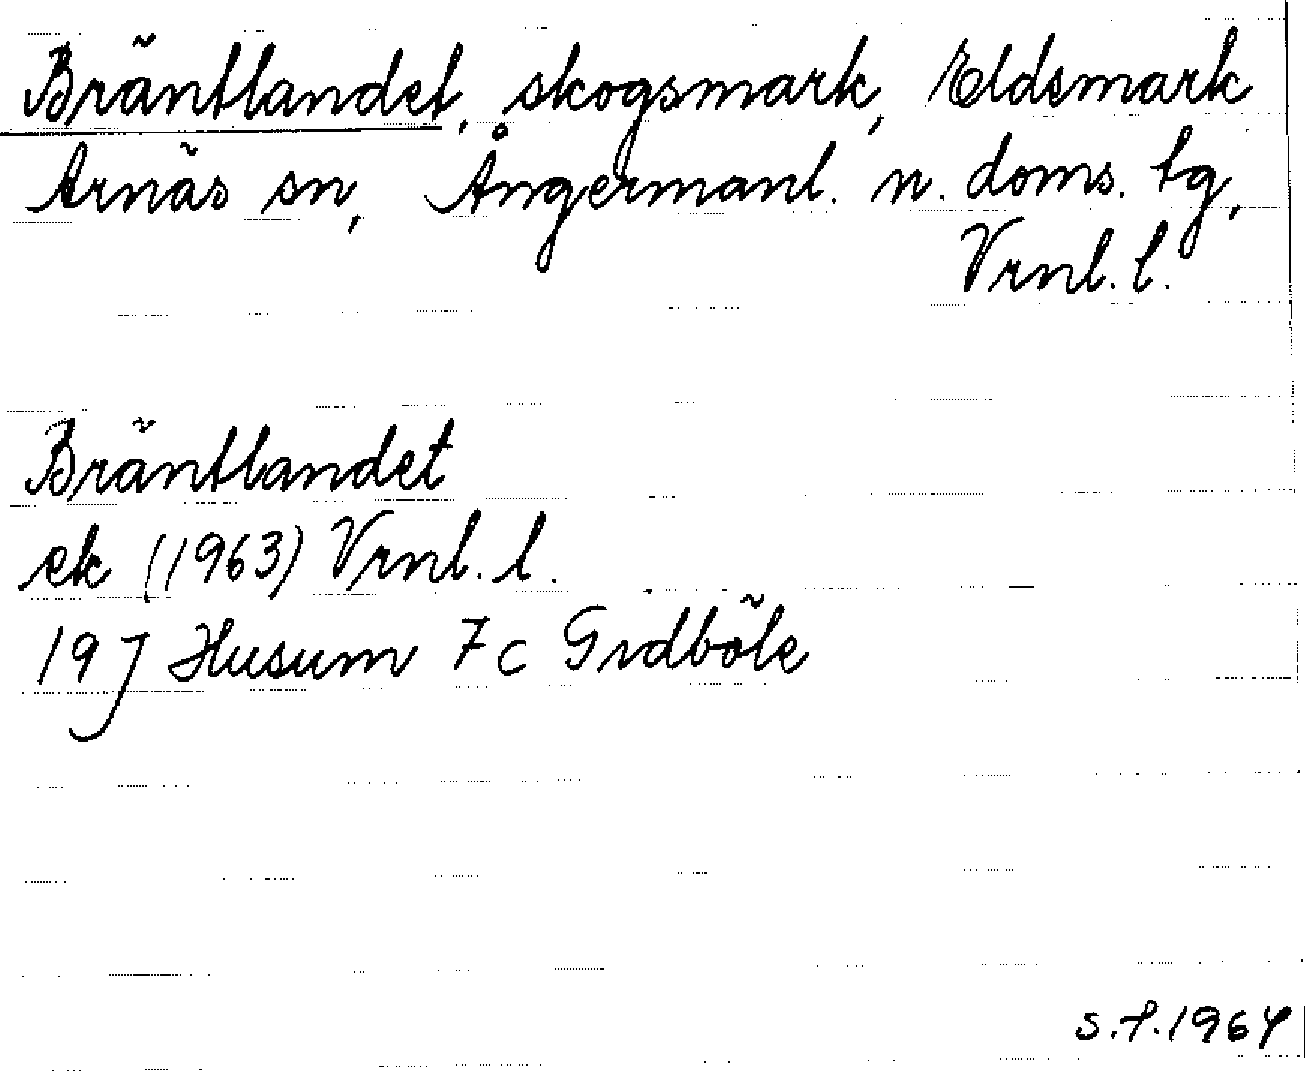 Bräntlandet, skogsmark, Eldsmark
Arnäs sn, Ångermanl. n. doms. tg,
Vrnl. l.
Bräntlandet
ek (1963) Vrnl. l.
19 J Husum 7 c Gidböle
S.F. 1964